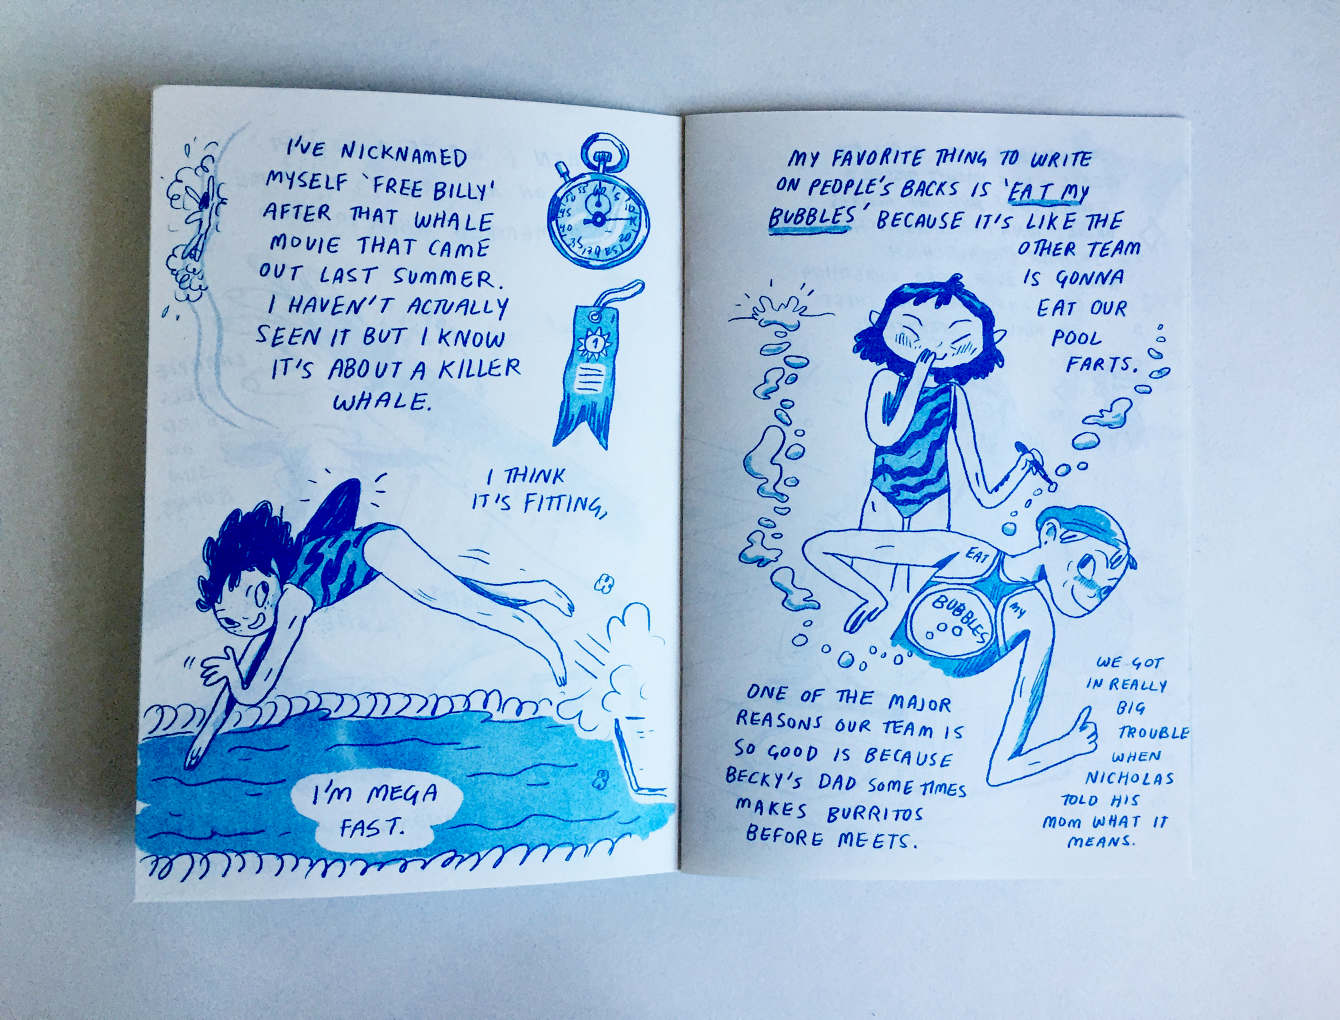 I'VE NICKNAMED
MYSELF 'FREE BILLY'
AFTER THAT WHALE
MOVIE THAT CAME
OUT LAST SUMMER.
I HAVEN'T ACTUALLY
SEEN IT BUT I KNOW
IT'S ABOUT A KILLER
WHALE.
1
I THINK
IT'S FITTING,
I'M MEGA
FAST.
MY FAVORITE THING TO WRITE
ON PEOPLE'S BACKS IS 'EAT MY
BUBBLES' BECAUSE IT'S LIKE THE
OTHER TEAM
IS GONNA
EAT OUR
POOL
FARTS.
EAT
MY
BUBBLES
ONE OF THE MAJOR
REASONS OUR TEAM IS
SO GOOD IS BECAUSE
BECKY'S DAD SOMETIMES
MAKES BURRITOS
BEFORE MEETS.
WE GOT
IN REALLY
BIG
TROUBLE
WHEN
NICHOLAS
TOLD HIS
MOM WHAT IT
MEANS.